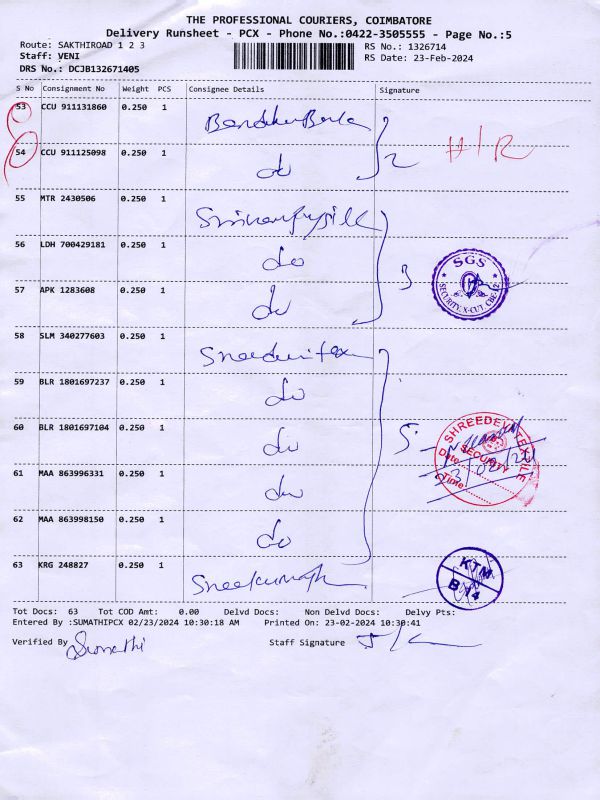 THE PROFESSIONAL COURIERS, COIMBATORE
Delivery Runsheet - PCX - Phone No.:0422-3505555 - Page No.:5
Route: SAKTHIROAD 1 2 3 RS No.: 1326714
Staff: VENI RS Date: 23-Feb-2024
DRS No.: DCJB132671405
S No Consignment No Weight PCS Consignee Details Signature
53 CCU 911131860 0.250 1
54 CCU 911125098 0.250 1 do 2 H/R
55 MTR 2430506 0.250 1
56 LDH 700429181 0.250 1 do
57 APK 1283608 0.250 1 do 3 SGS SECURITY, X-CUT, CBE
58 SLM 340277603 0.250 1
59 BLR 1801697237 0.250 1 do
60 BLR 1801697104 0.250 1 do 5 SHREEDEVI TEXTILE SECURITY Date Time
61 MAA 863996331 0.250 1 do
62 MAA 863998150 0.250 1 do
63 KRG 248827 0.250 1 KTM B 14
Tot Docs: 63 Tot COD Amt: 0.00 Delvd Docs: Non Delvd Docs: Delvy Pts:
Entered By :SUMATHIPCX 02/23/2024 10:30:18 AM Printed On: 23-02-2024 10:30:41
Verified By Sumathi Staff Signature